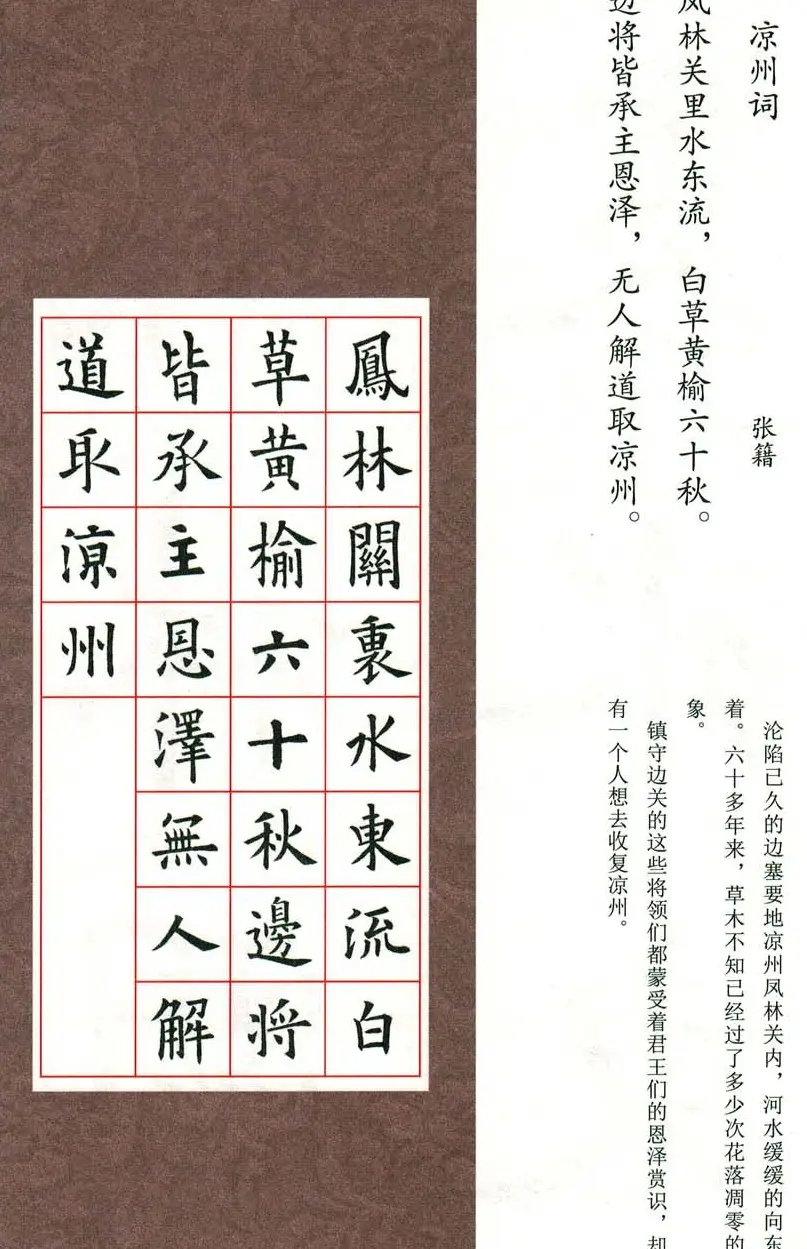 凉州词
张籍
凤林关里水东流，白草黄榆六十秋。
边将皆承主恩泽，无人解道取凉州。
沦陷已久的边塞要地凉州凤林关内，河水缓缓的向东
着。六十多年来，草木不知已经过了多少次花落凋零的
象。
镇守边关的这些将领们都蒙受着君王们的恩泽赏识，却
有一个人想去收复凉州。
鳳林關裏水東流白
草黄榆六十秋邊將
皆承主恩澤無人解
道取涼州